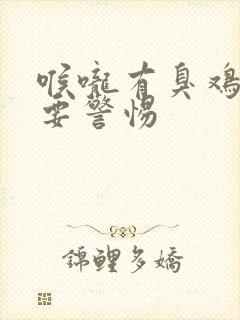 喉嚨有臭鳮
要警惕
錦鯉多嬌